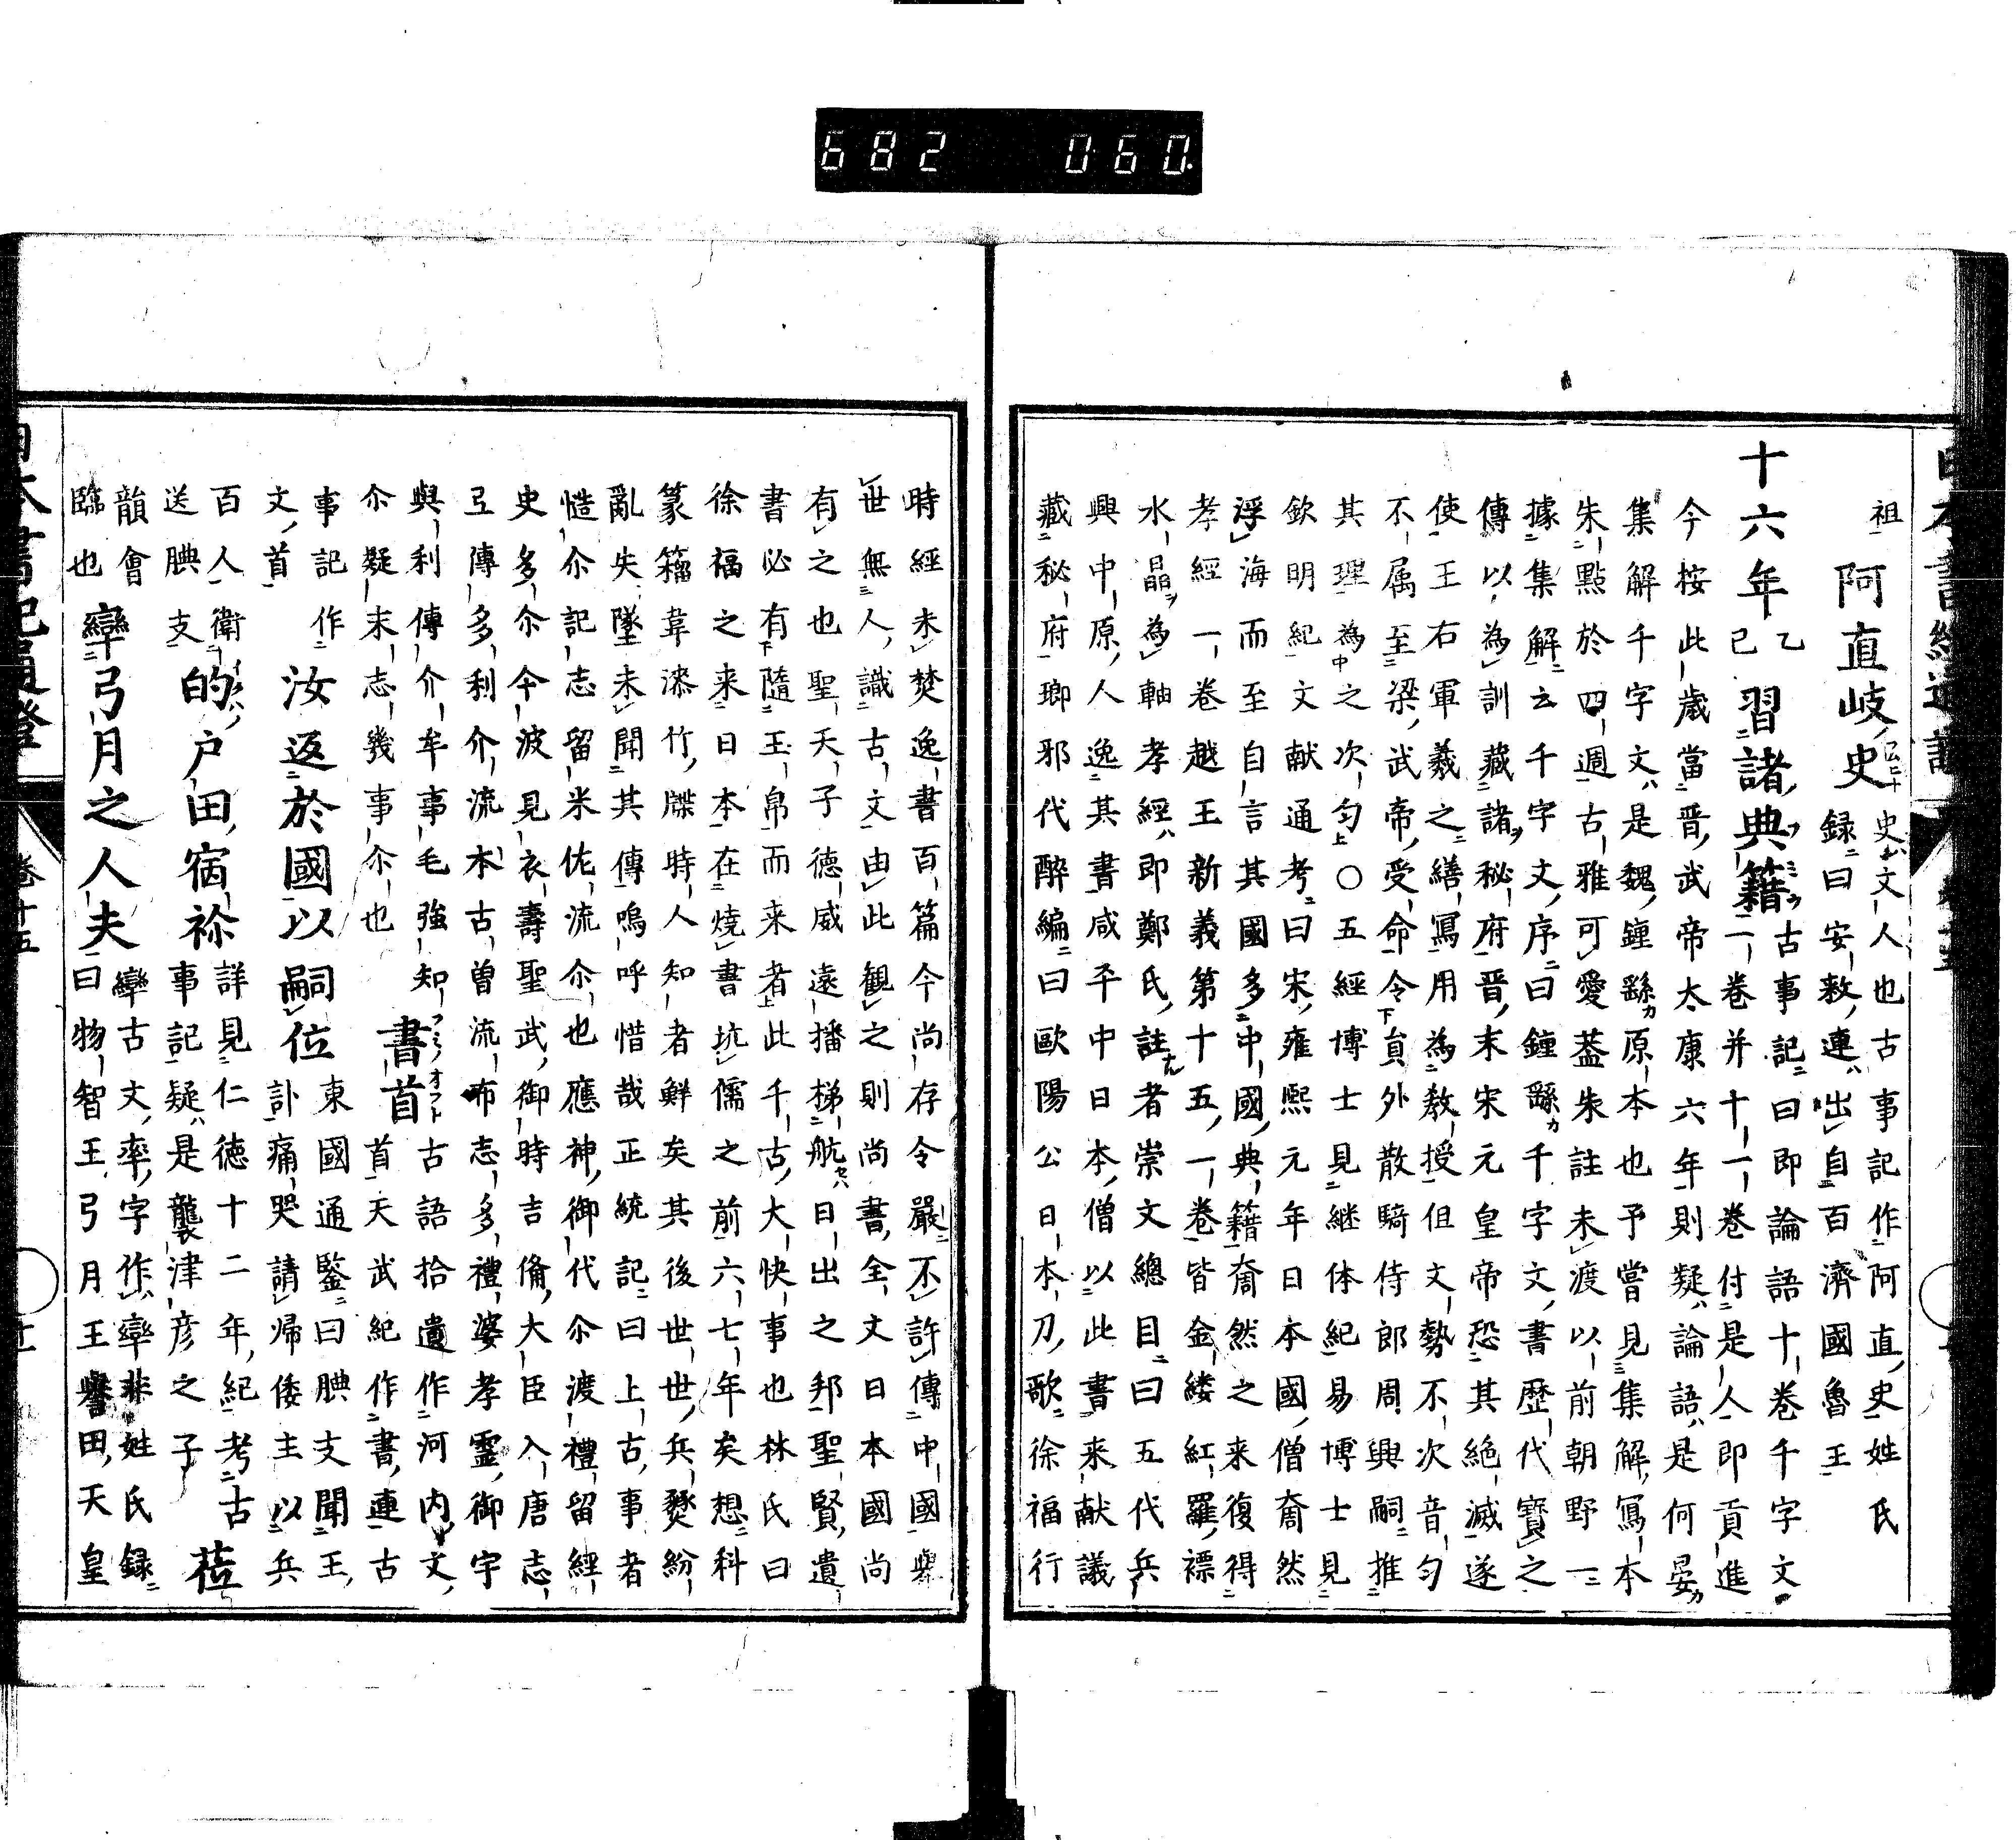 682 060
祖
阿直岐史 史文人也古事記作阿直史姓氏
録曰安敕連出自百濟國魯王
十六年 乙巳 習諸典籍 古事記曰即論語十卷千字文
一卷并十一卷付是人即貢進
今桉此歳當晋武帝太康六年則疑論語是何晏
集解千字文是魏鍾繇原本也予嘗見集解寫本
朱點於四週古雅可愛蓋朱註未渡以前朝野一
據集解云千字文序曰鍾繇千字文書歴代寶之
傳以為訓藏諸秘府晋末宋元皇帝恐其絶滅遂
使王右軍羲之繕寫用為教授但文勢不次音匀
不属至梁武帝受命令貟外散騎侍郎周興嗣推
其理為之次匀○五經博士見継体紀易博士見
欽明紀文献通考曰宋雍熙元年日本國僧奝然
浮海而至自言其國多中國典籍奝然之来復得
孝經一卷越王新義第十五一卷皆金縷紅羅褾
水晶為軸孝經即鄭氏註者崇文總目曰五代兵
興中原人逸其書咸平中日本僧以此書来献議
藏秘府瑯邪代醉編曰歐陽公日本刀歌徐福行
時經未焚逸書百篇今尚存令嚴不許傳中國擧
世無人識古文由此観之則尚書全文日本國尚
有之也聖天子德威遠播梯航日出之邦聖賢遺
書必有隨玉帛而来者此千古大快事也林氏曰
徐福之来日本在燒書坑儒之前六七年矣想科
篆籀韋漆竹牒時人知者鮮矣其後世世兵燹紛
亂失墜未聞其傳嗚呼惜哉正統記曰上古事者
史多尒今波見衣壽聖武御時吉備大臣入唐志
弖傳多利介流本古曽流布志多禮婆孝霊御宇
與利傳介牟事毛強知 書首 フミノオフト 古語拾遺作河内文
尒疑末志幾事尒也 首天武紀作書連古
事記作
文首 汝返於國以嗣位 東國通鑒曰腆支聞王
訃痛哭請帰倭主以兵
百人衛
送腆支 的戸田宿祢 詳見仁徳十二年紀考古
事記疑是襲津彦之子 莅
韻會
臨也 㝈弓月之人夫 㝈古文率字作㝈非姓氏録
曰物智王弓月王譽田天皇
日本書紀通證 卷十五